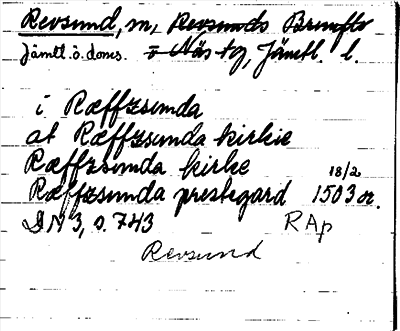 Revsund, m, Revsunds Brunflo
Jämtl. ö. doms. o Näs tg, Jämtl. l.
i Ræffzsunda
at Ræffzsunda kirkie
Ræffzsunda kirke
Ræffzsunda prestegard 18/2 1503 or.
DN 3, s. 743 RAp
Revsund